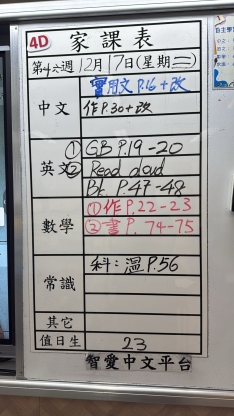 4D 家課表
第十六週 12月17日(星期三)
中文 實用文P.16+改
作P.30+改
英文 ① GB P.19-20
② Read aloud
Bk. P.47-48
數學 ①作P.22-23
②書P.74-75
常識 科：溫P.56
其它
值日生 23
智愛中文平台